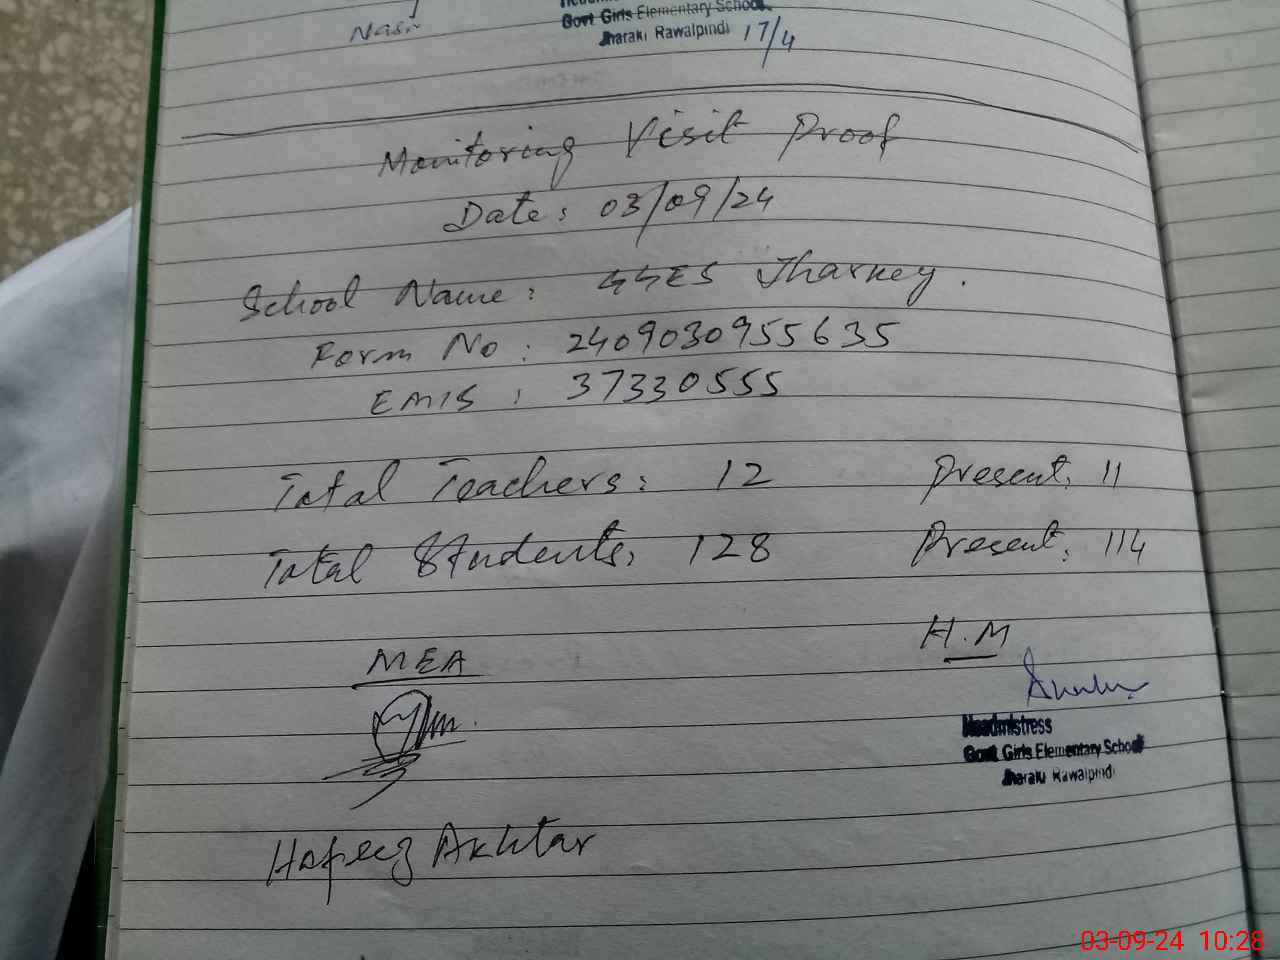 Nasr
Govt Girls Elementary School
Jharaki Rawalpindi 17/4
Monitoring Visit Proof
Date: 03/09/24
School Name: GGES Jharkey.
Form No: 2409030955635
EMIS: 37330555
Total Teachers: 12 Present: 11
Total Students: 128 Present: 114
MEA H.M
Headmistress
Govt Girls Elementary School
Jharaki Rawalpindi
Hafeez Akhtar
03-09-24 10:28